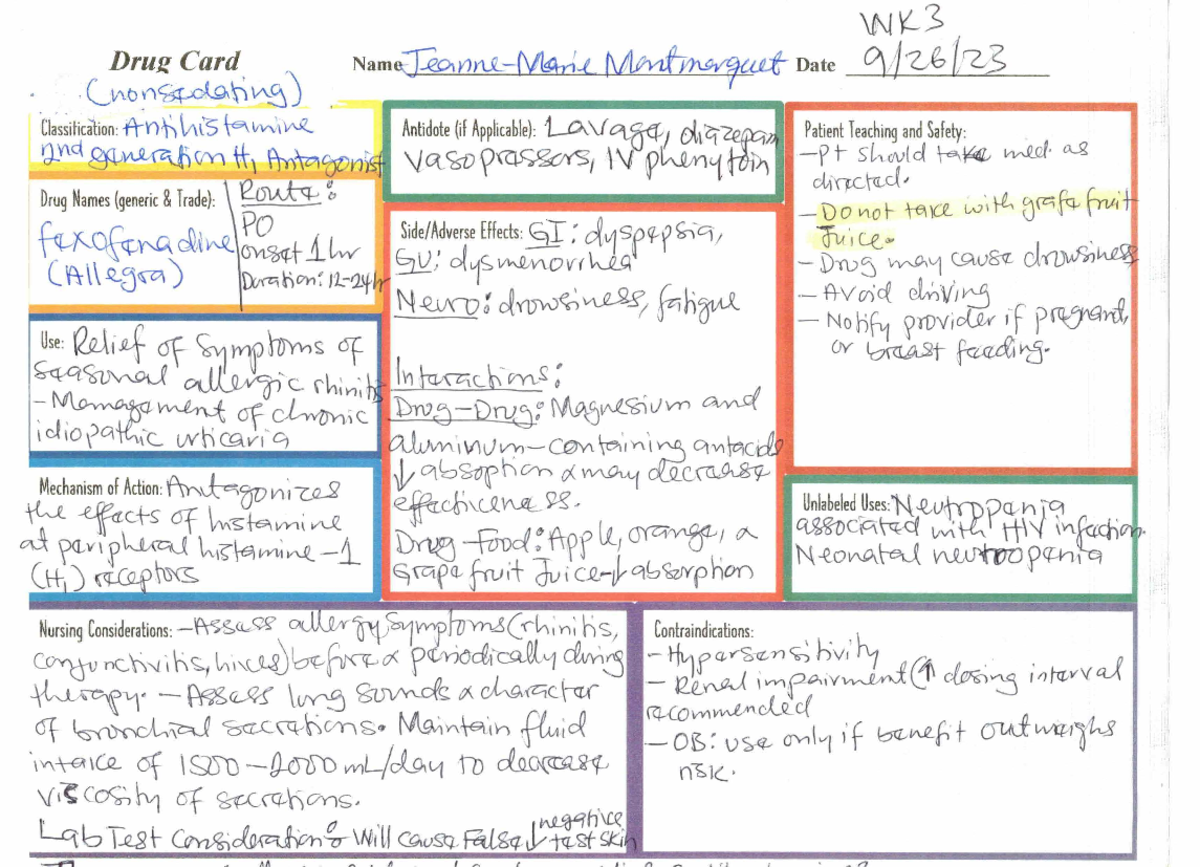 WK3
Drug Card Name Jeanne-Marie Montmarquet Date 9/26/23
(nonsedating)
Classification: Antihistamine
2nd generation H₁ Antagonist
Drug Names (generic & Trade):
fexofenadine
(Allegra)
Route:
PO
onset 1 hr
Duration: 12-24hr
Use: Relief of Symptoms of
seasonal allergic rhinitis
- Management of chronic
idiopathic urticaria
Mechanism of Action: Antagonizes
the effects of histamine
at peripheral histamine-1
(H₁) receptors
Antidote (if Applicable): Lavage, diazepam
vasopressors, IV phenytoin
Side/Adverse Effects: GI: dyspepsia,
GU: dysmenorrhea
Neuro: drowsiness, fatigue
Interactions:
Drug-Drug: Magnesium and
aluminum-containing antacids
↓ absoption & may decrease
effecticeness.
Drug-Food: Apple, orange, &
Grapefruit Juice-↓absorption
Patient Teaching and Safety:
-Pt should take med. as
directed.
- Do not take with grafefruit
Juice.
- Drug may cause drowsiness
- Avoid driving
- Notify provider if pregnant,
or breast feeding.
Unlabeled Uses: Neutropenia
associated with HIV infection.
Neonatal neutropenia
Nursing Considerations: -Assess allergy symptoms (rhinitis,
conjunctivitis, hives) before & periodically during
therapy. - Assess lung sounds & character
of bronchial secretions. Maintain fluid
intake of 1500-2000 mL/day to decrease
viscosity of secretions.
Lab Test Consideration: Will cause False ↓ negative test skin
Contraindications:
- Hypersensitivity
- Renal impairment (↑ dosing interval
recommended
- OB: use only if benefit outweighs
risk.